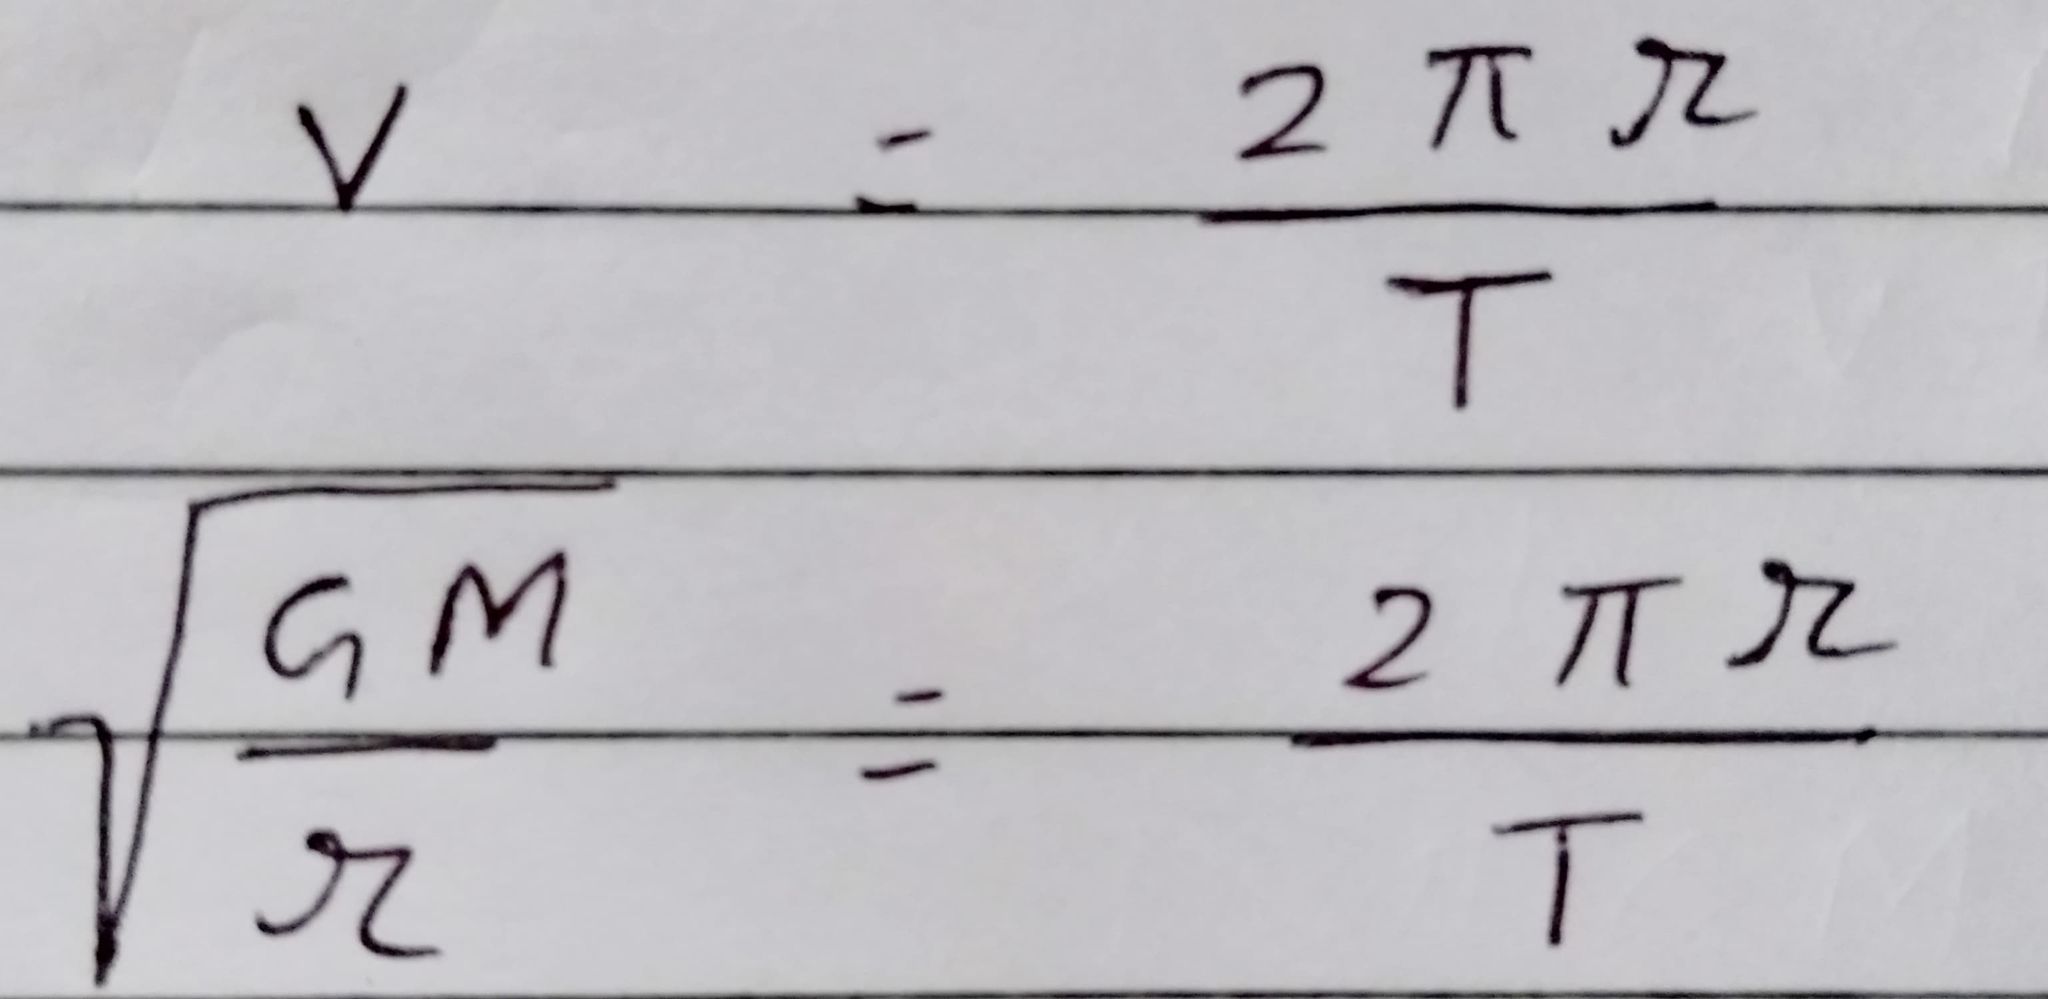 V = 2 π r / T
√(G M / r) = 2 π r / T